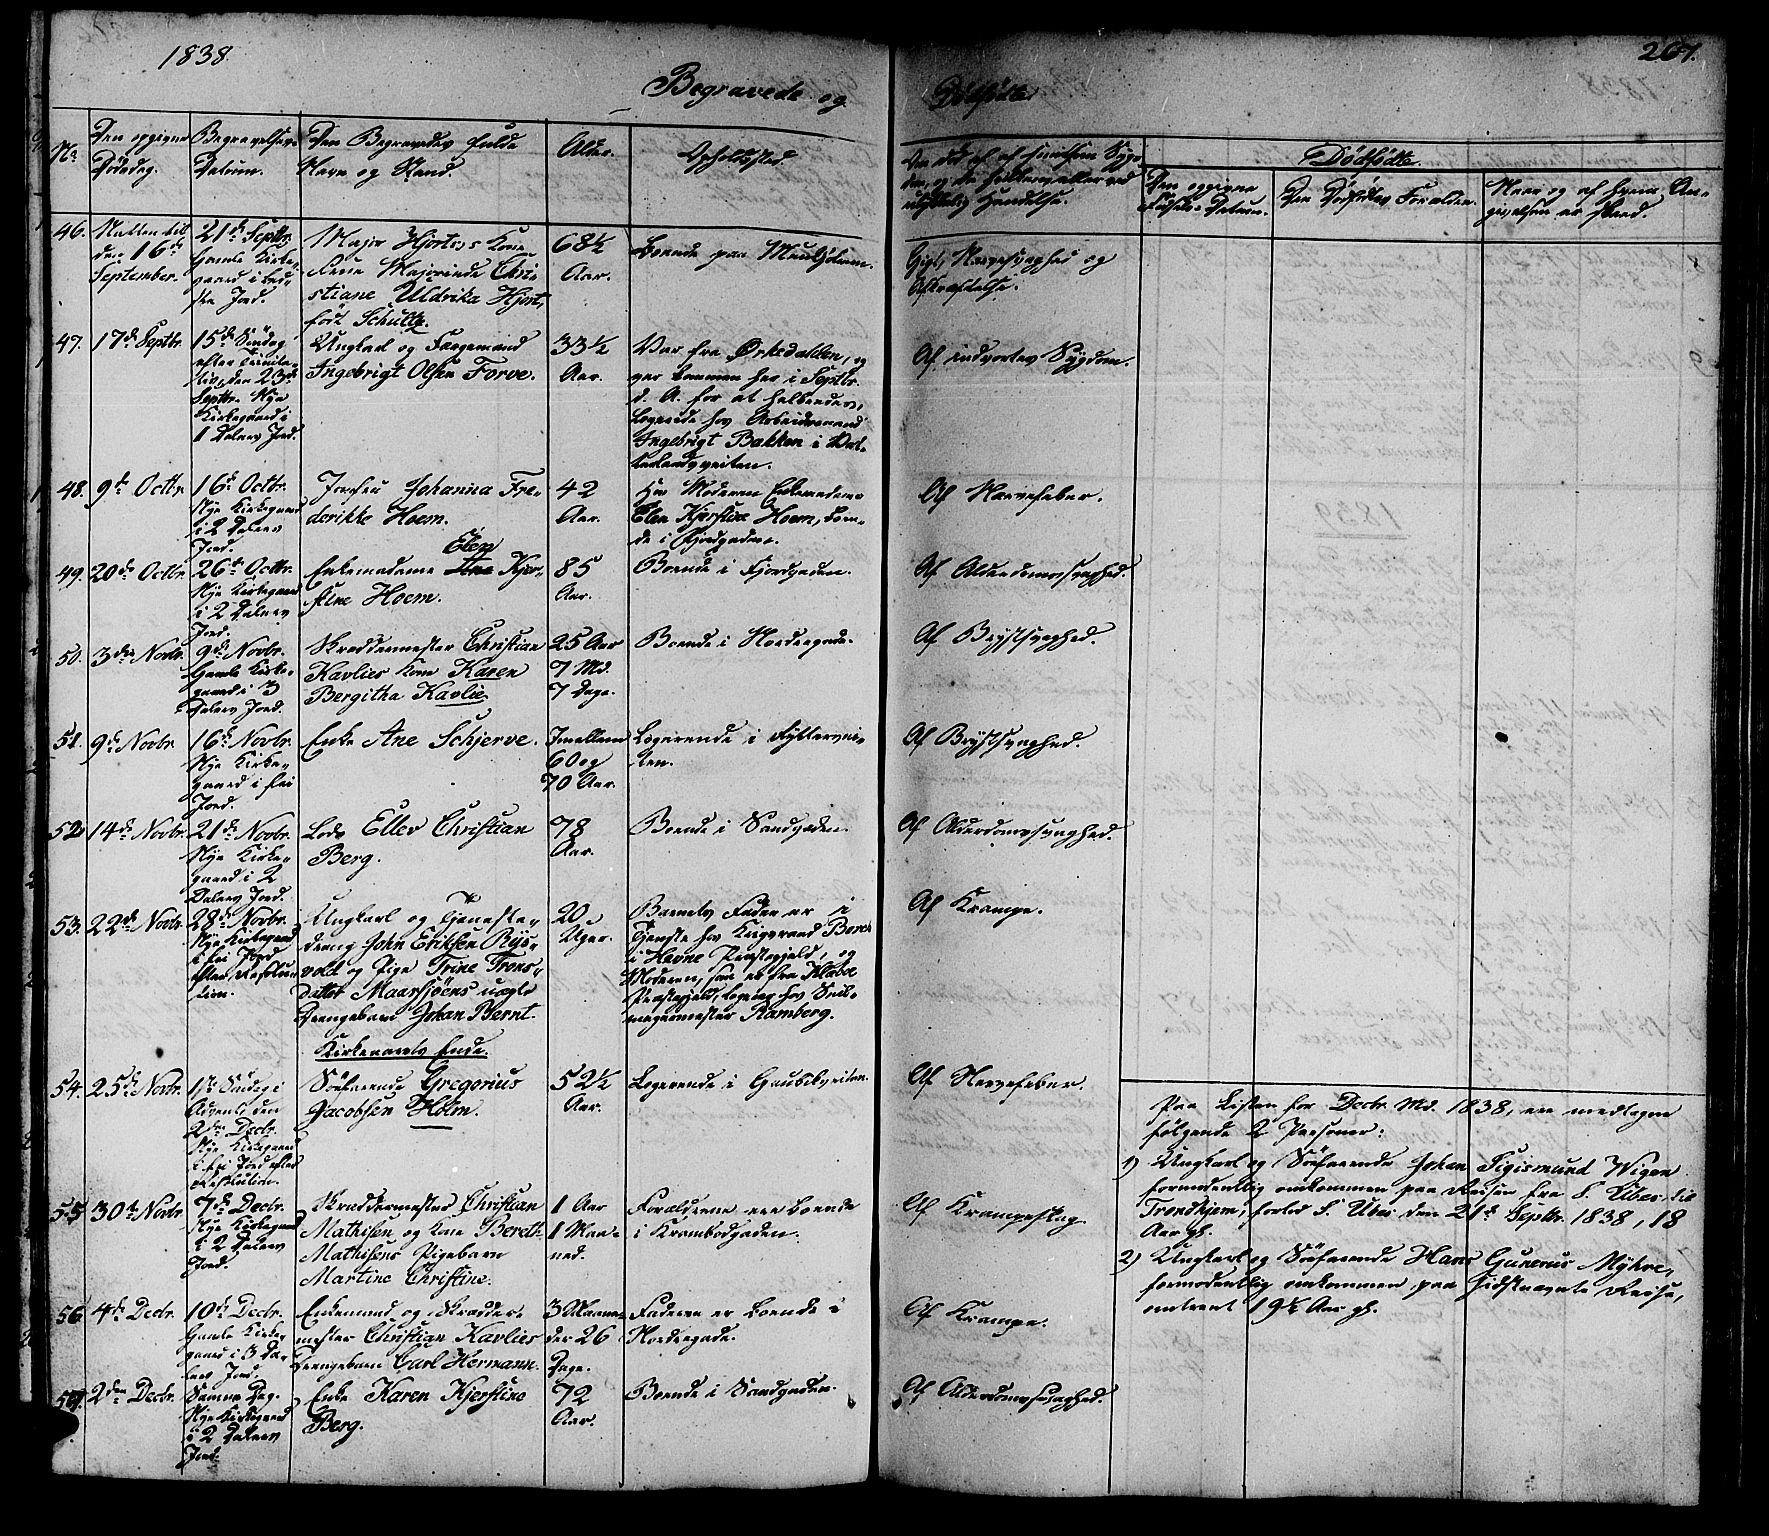 1838.
267.
Begravede og
Dödfödte
No
Den opgivne
Dödsdag.
Begravelses
Datum.
Den Begravedes fulde
Navn og Stand.
Alder.
Opholdssted.
Dödfödte.
Den opgivne
Födsels-Datum.
Den Dödfödtes Forældre.
Naar og af hvem An-
givelsen er skeed.
46.
Natten til
den 16de
September.
21de Septbr.
Gamle Kirke-
gaard i
Jord.
Major Hjorts Kone
Majorinde Chri-
stiane Uldrika Hjort,
födt Schultz.
68½
Aar.
Boende paa
Gigt, Nervesvaghed og
Afkræftelse.
47.
17de Septbr.
15de Söndag
efter Trinita-
tis, den 23de
Septbr. Nye
Kirkegaard i
1 Dalers Jord.
Ungkarl og Færgemand
Ingebrigt Olsen Forve.
33½
Aar.
Var fra Örkedalen, og
var kommen her i Septbr.
d. A. for at helbredes,
Logerede hos Arbeidsmand
Ingebrigt Bakken i
Af indvortes Sygdom.
48.
9de Octbr.
16de Octbr.
Nye Kirkegaard
i 2 Dalers
Jord.
Jomfru Johanna Fre-
derikke Hoem.
42
Aar.
Hos Moderen Enkemadame
Elen Kjerstine Hoem, boen-
de i Fjordgaden.
Af Nervefeber.
49.
20de Octbr.
26de Octbr.
Nye Kirkegaard
i 2 Dalers
Jord.
Elen
Enkemadame Ane Kjer-
stine Hoem.
85
Aar.
Boende i Fjordgaden.
Af Alderdomssvaghed.
50.
3die Novbr.
9de Novbr.
Gamle Kirke-
gaard i 3
Dalers Jord.
Skræddermester Christian
Kavlies Kone Karen
Bergitha Kavlie.
25 Aar
7 Md.
7 Dage.
Boende i Nordregade.
Af Brystsvaghed.
51.
9de Novbr.
16de Novbr.
Nye Kirke-
gaard i fri
Jord.
Enke Ane Schjerve.
Imellem
60 og
70 Aar.
Logerende i Ryttervei-
ten.
Af Brystsvaghed.
52.
14de Novbr.
21de Novbr.
Nye Kirke-
gaard i 2
Dalers Jord.
Lods Ellev Christian
Berg.
78
Aar.
Boende i Sandgaden.
Af Alderdomssvaghed.
53.
22de Novbr.
28de Novbr.
Nye Kirkegaard
i fri Jord
efter Resolu-
tion.
Ungkarl og Tjeneste-
dreng John Eriksen Rys-
vold og Pige Trine Trons-
datter Maarsjöens uægte
Drengebarn Johan Bernt.
20
Uger.
Barnets Fader er i
Tjeneste hos
i Hevne Præstegjeld, og
Moderen, som er fra Klæboe
Præstegjeld, logerer hos Snik-
magermester Ramberg.
Af Krampe.
Kirkeaarets Ende.
54.
25de Novbr.
1ste Söndag i
Advent, den
2den Decbr.
Nye Kirkegaard
i fri Jord efter
Resolution.
Söefarende Gregorius
Jacobsen Holm.
52½
Aar.
Logerende i Gaubekveiten.
Af Nervefeber.
55
30te Novbr.
7de Decbr.
Nye Kirkegaard
i 2 Dalers
Jord.
Skræddermester Christian
Mathisen og Kone Bereth
Mathisens Pigebarn
Martine Christine.
1 Aar
1 Maa-
ned.
Forældrene ere boende
i Krambodgaden.
Af Krampeslag.
56.
4de Decbr.
10de Decbr.
Gamle Kirke-
gaard i 3 Da-
lers Jord.
Enkemand og Skrædder-
mester Christian Kavlies
Drengebarn Carl Hermann.
3 Maane-
der 26
Dage.
Faderen er boende i
Nordregade.
Af Krampe.
57.
2den Decbr.
Samme Dag.
Nye Kirkegaard
i 2 Dalers
Jord.
Enke Karen Kjerstine
Berg.
72
Aar.
Boende i Sandgaden.
Af Alderdomssvaghed.
Paa Listen for Decbr. Md. 1838, ere medtagne
fölgende 2 Personer:
1) Ungkarl og Söefarende Johan Sigismund Wigen
formodentlig omkommen paa Reisen fra S. Ubes til
Trondhjem, forlod S. Ubes den 21de Septbr. 1838, 18
Aar gl.
2) Ungkarl og Söefarende Hans Gunerus Myhre,
formodentlig omkommen paa sidstnævnte Reise,
omtrent 19½ Aar gl.